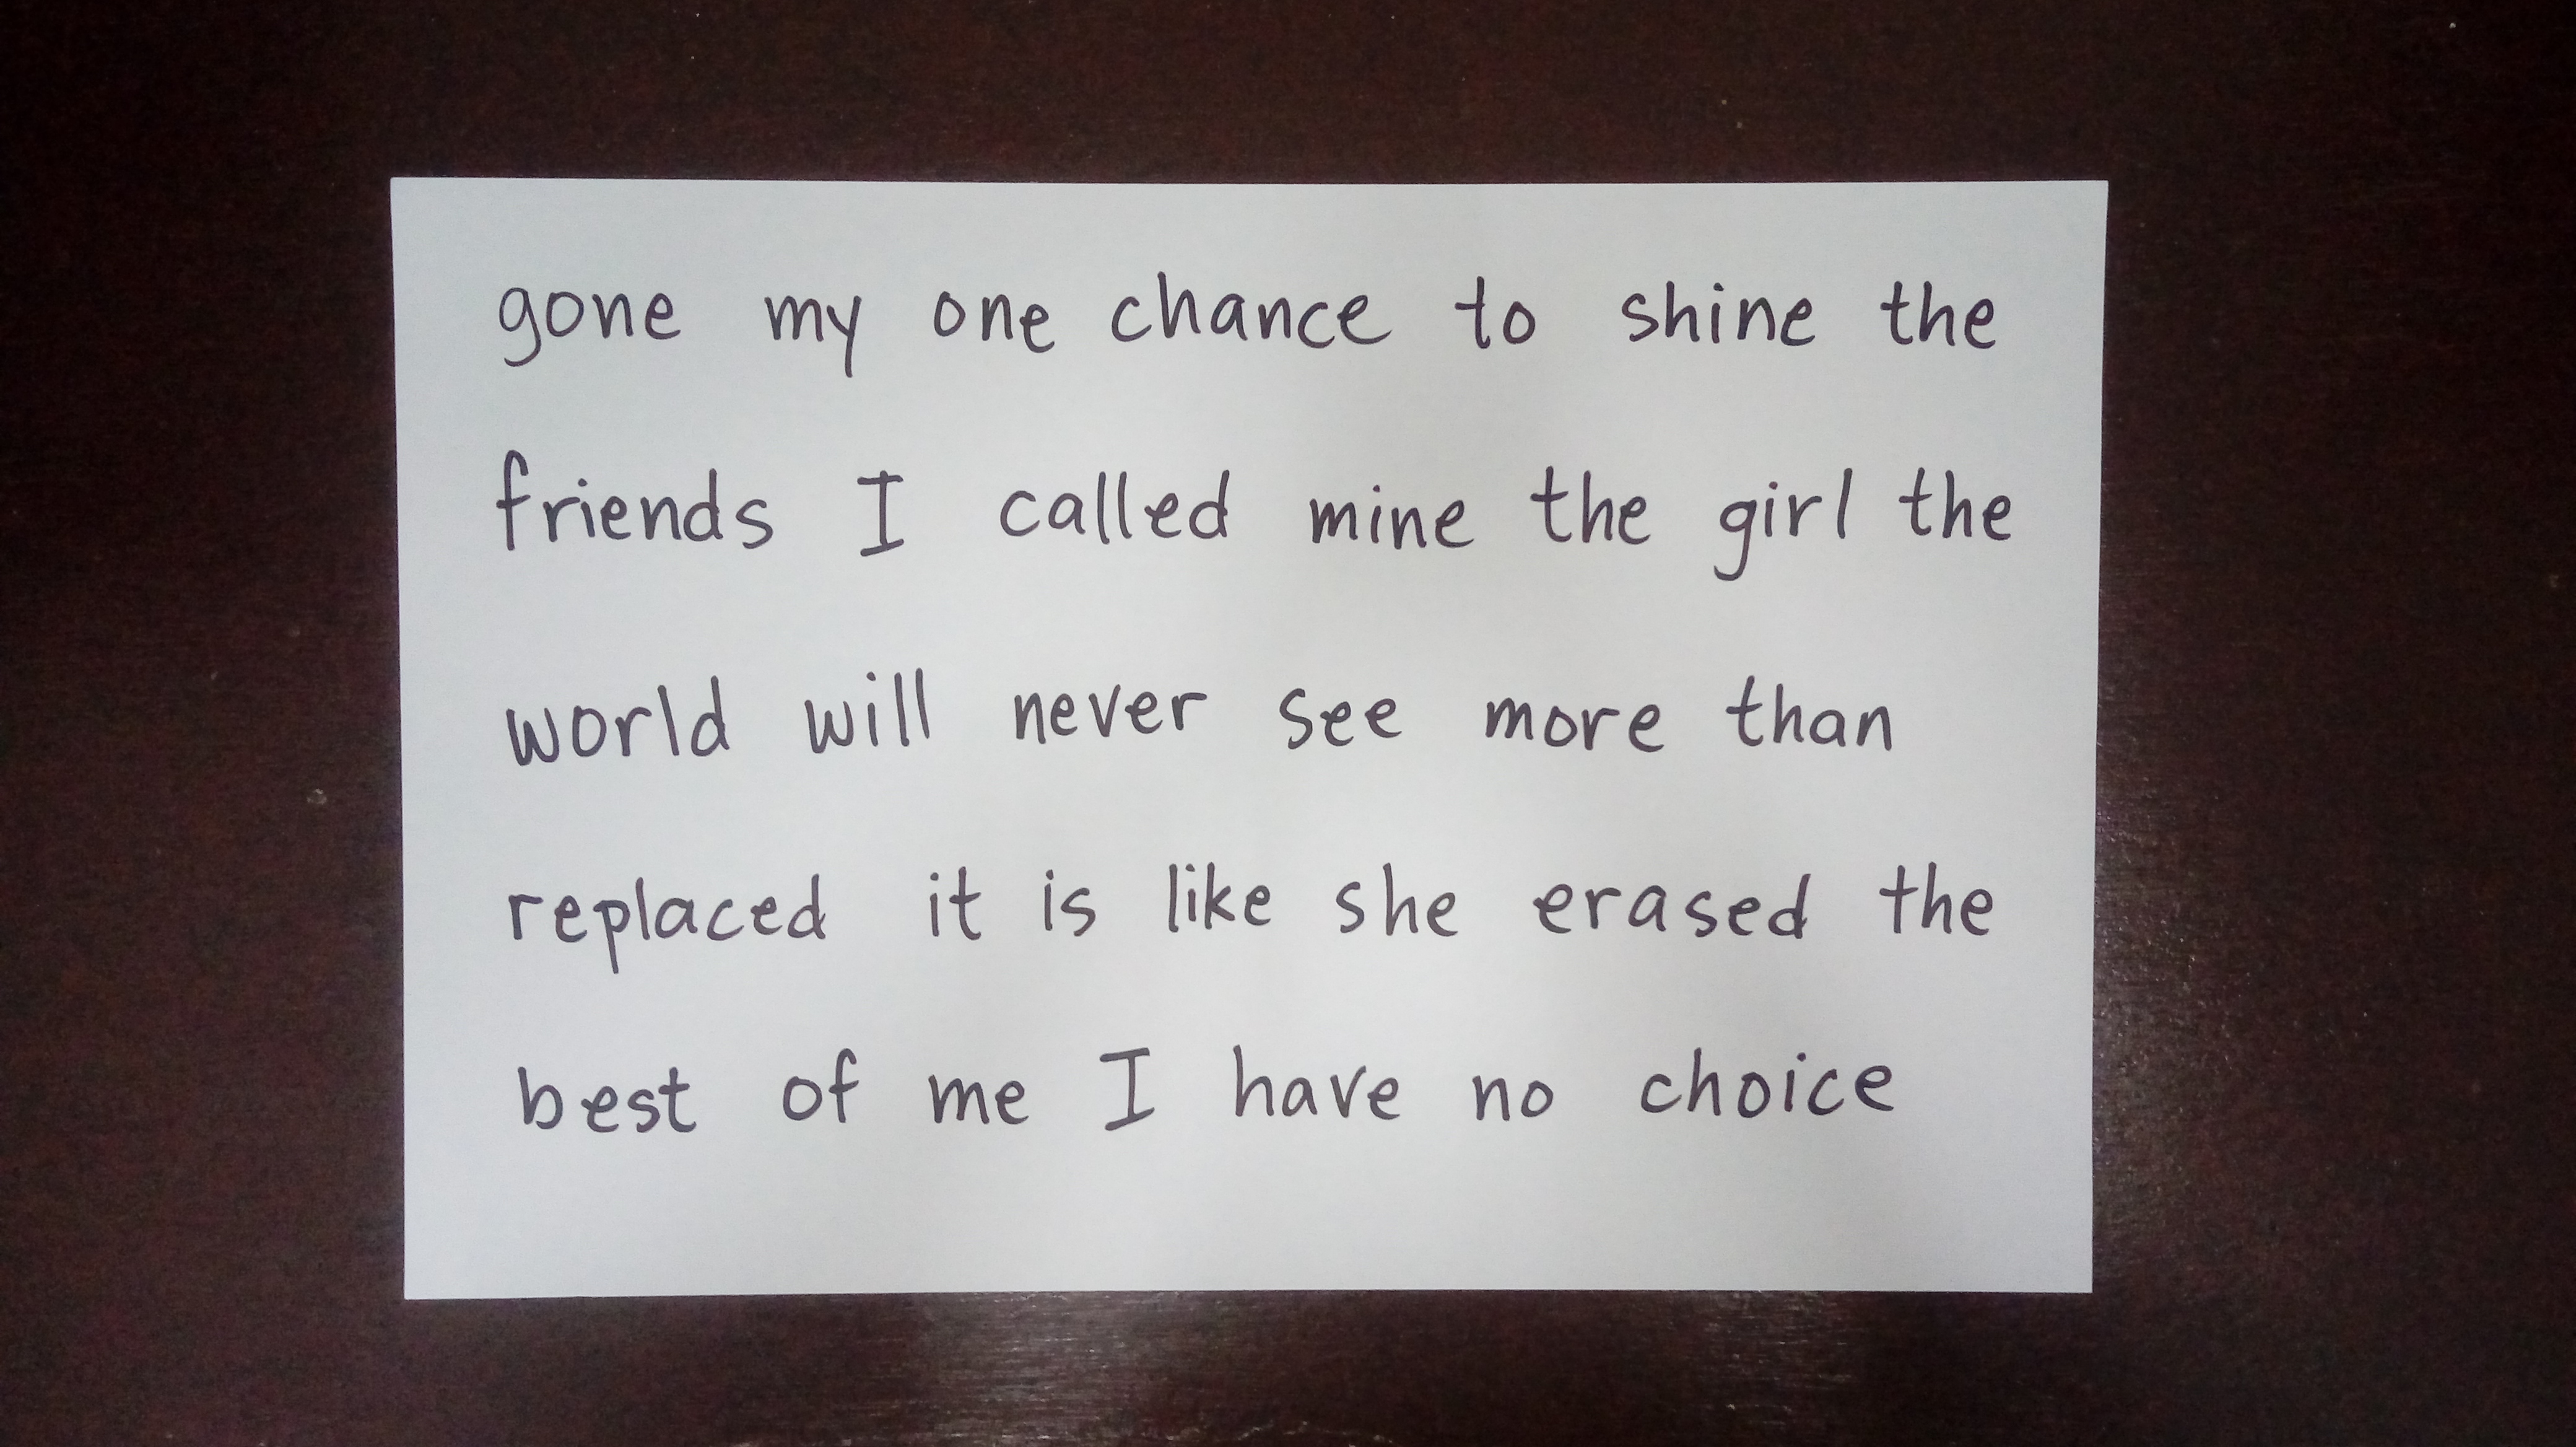 gone my one chance to shine the
friends I called mine the girl the
world will never see more than
replaced it is like she erased the
best of me I have no choice